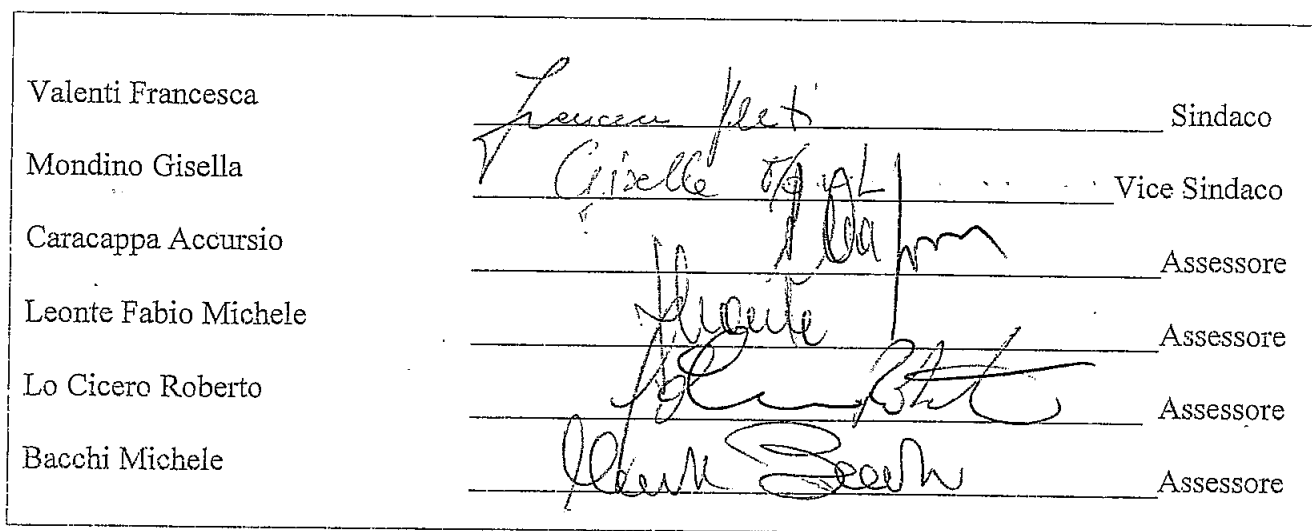 Valenti Francesca Sindaco
Mondino Gisella Giselle Vice Sindaco
Caracappa Accursio Assessore
Leonte Fabio Michele Assessore
Lo Cicero Roberto Assessore
Bacchi Michele Assessore